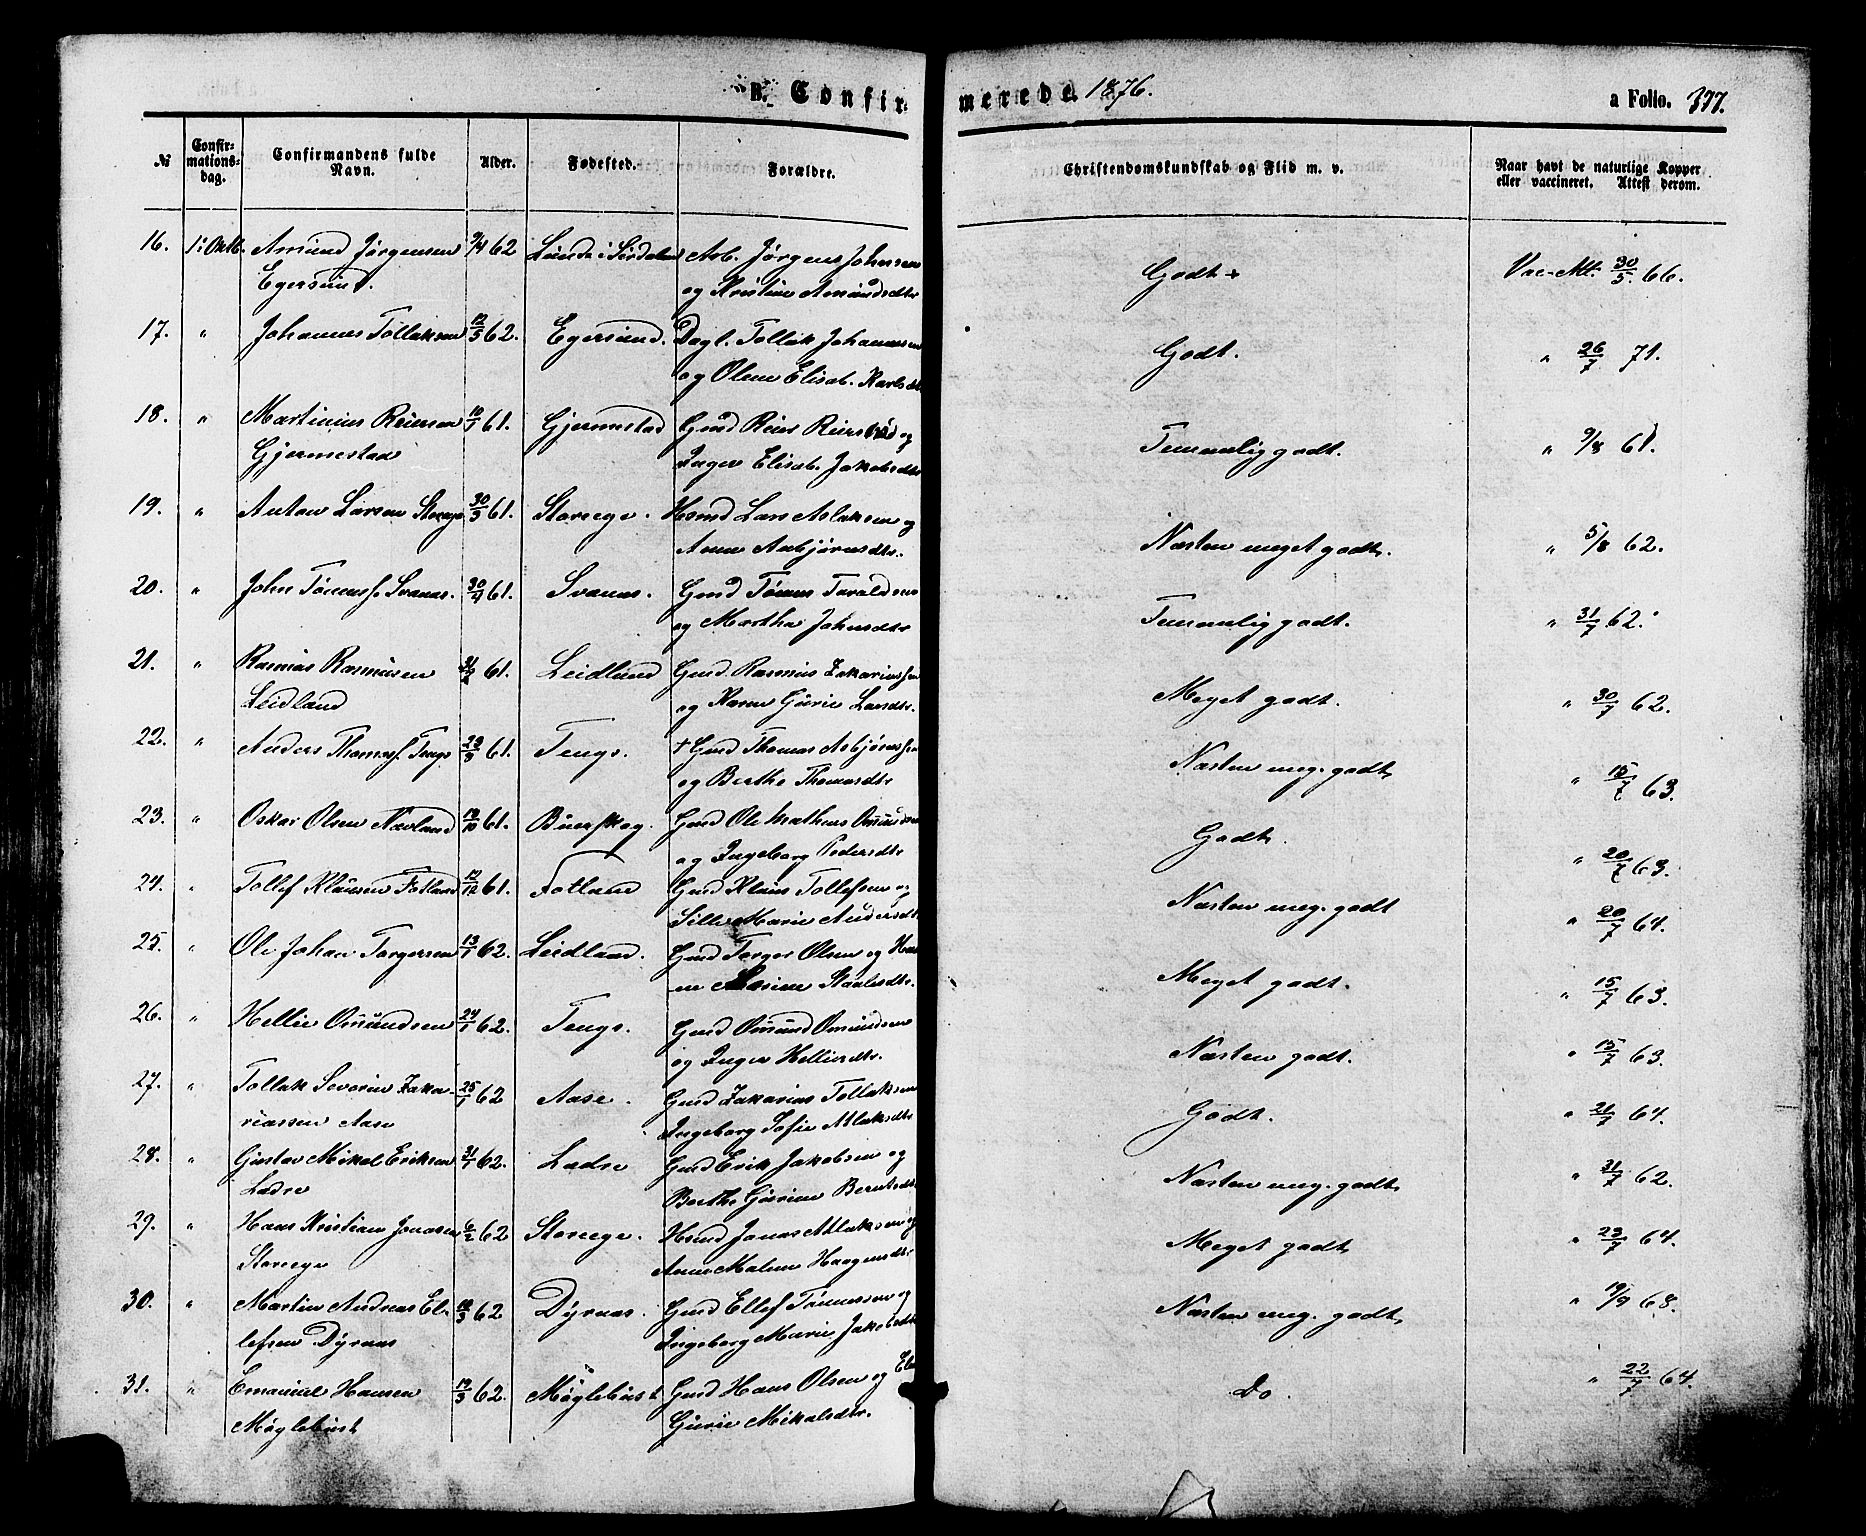 B. Confirmerede 1876. a Folio. 377.
No Confirmationsdag. Confirmandens fulde Navn. Alder. Fødested. Forældre. Christendomskundskab og Flid m. v. Naar havt de naturlige Kopper eller vaccineret. Attest derom.
16. 1: Oktb. Amund Jørgensen 9/4 62 Lunde i Sirdalen Arb. Jørgen Johnsen Godt + Vac-Att. 30/5. 66.
Egersund. og Kristine Amundsdtr
17. " Johannes Tollaksen 12/5 62. Egersund. Dagl. Tollak Johannessen Godt. " 26/7 71.
og Olene Elisab. Karlsdtr
18. " Martinius Reiersen 10/1 61. Gjermestad Gmd Reier og Temmelig godt. " 9/8 61.
Gjermestad Inger Elisab. Jakobsdtr
19. " Anton Larsen Storeege 30/3 61. Storeege. Hsmd Lars Aslaksen og Næsten meget godt. " 5/8 62.
Anne Asbjørnsdtr.
20. " John Tønnes. Svanæs. 30/4 61. Svanæs. Gmd Tønnes Taraldsen Temmelig godt. " 31/7 62.
og Martha Johnsdtr
21. " Rasmus Rasmusen 61. Leidland Gmd. Rasmus Zakariassen Meget godt. " 30/7 62.
Leidland og Karen Gurie Larsdtr.
22. " Anders Thomass. Tengs 29/9 61. Tengs. + Gmd Thomas Asbjørnsen Næsten meg. godt " 15/7 63.
og Berthe Thomasdtr
23. " Oskar Olsen Navland 12/10 61. Buerskog. Gmd Ole Mathias Omundsen Godt. " 20/7 63.
og Ingeborg Pedersdtr
24. " Tollef Klausen Fotland 12/12 61. Fotland Gmd Klaus Tollefsen og Næsten meg. godt " 20/7 64.
Sille Marie Andersdt
25. " Ole Johan Torgersen 13/1 62. Leidland. Gmd Torger Olsen og Han Meget godt. " 15/7 63.
ne Marine Staalesdtr.
26. " Hellie Omundsen 24/1 62. Tengs. Gmd Omund Omundsen Næsten godt. " 15/7 63.
og Inger Helliesdtr.
27. " Tollak Severin Zaka- 25/1 62 Aase. Gmd Zakarias Tollaksen Godt. " 21/7 64.
riassen Aase Ingeborg Sofie Atlaksdtr
28. " Gustav Mikal Eriksen 31/1 62. Ladre Gmd Erik Jakobsen og Næsten meg. godt " 31/7 62.
Ladre Berthe Gurine Berntsdtr
29. " Hans Kristian Jonasen 6/2 62 Storeege. Hsmd Jonas Atlaksen og Meget godt " 23/7 64.
Storeege Anne Malene Haagensdtr
30. " Martin Andreas El- 18/3 62 Dyrnæs. Gmd Ellef Tønnessen og Næsten meg. godt, " 9/9 68.
lefsen Dyrnæs Ingeborg Marie Jakobsdtr
31. " Emanuel Hansen 19/3 62. Møglebust Gmd Hans Olsen og El Do. " 22/7 64.
Møglebust Gurie Mikalsdtr.